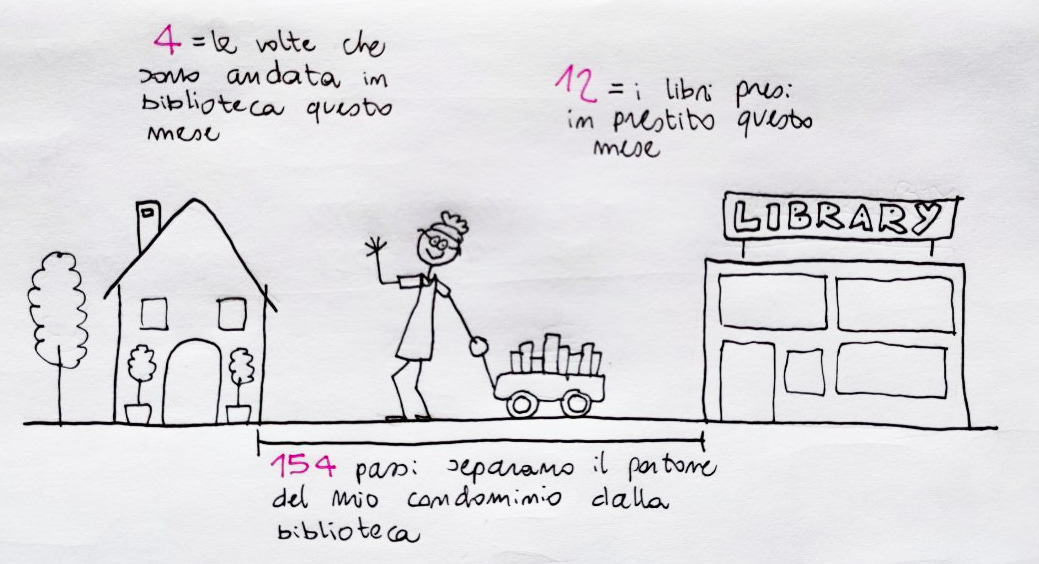 4 = le volte che
sono andata in
biblioteca questo
mese
12 = i libri presi
in prestito questo
mese
LIBRARY
154 passi separano il portone
del mio condominio dalla
biblioteca